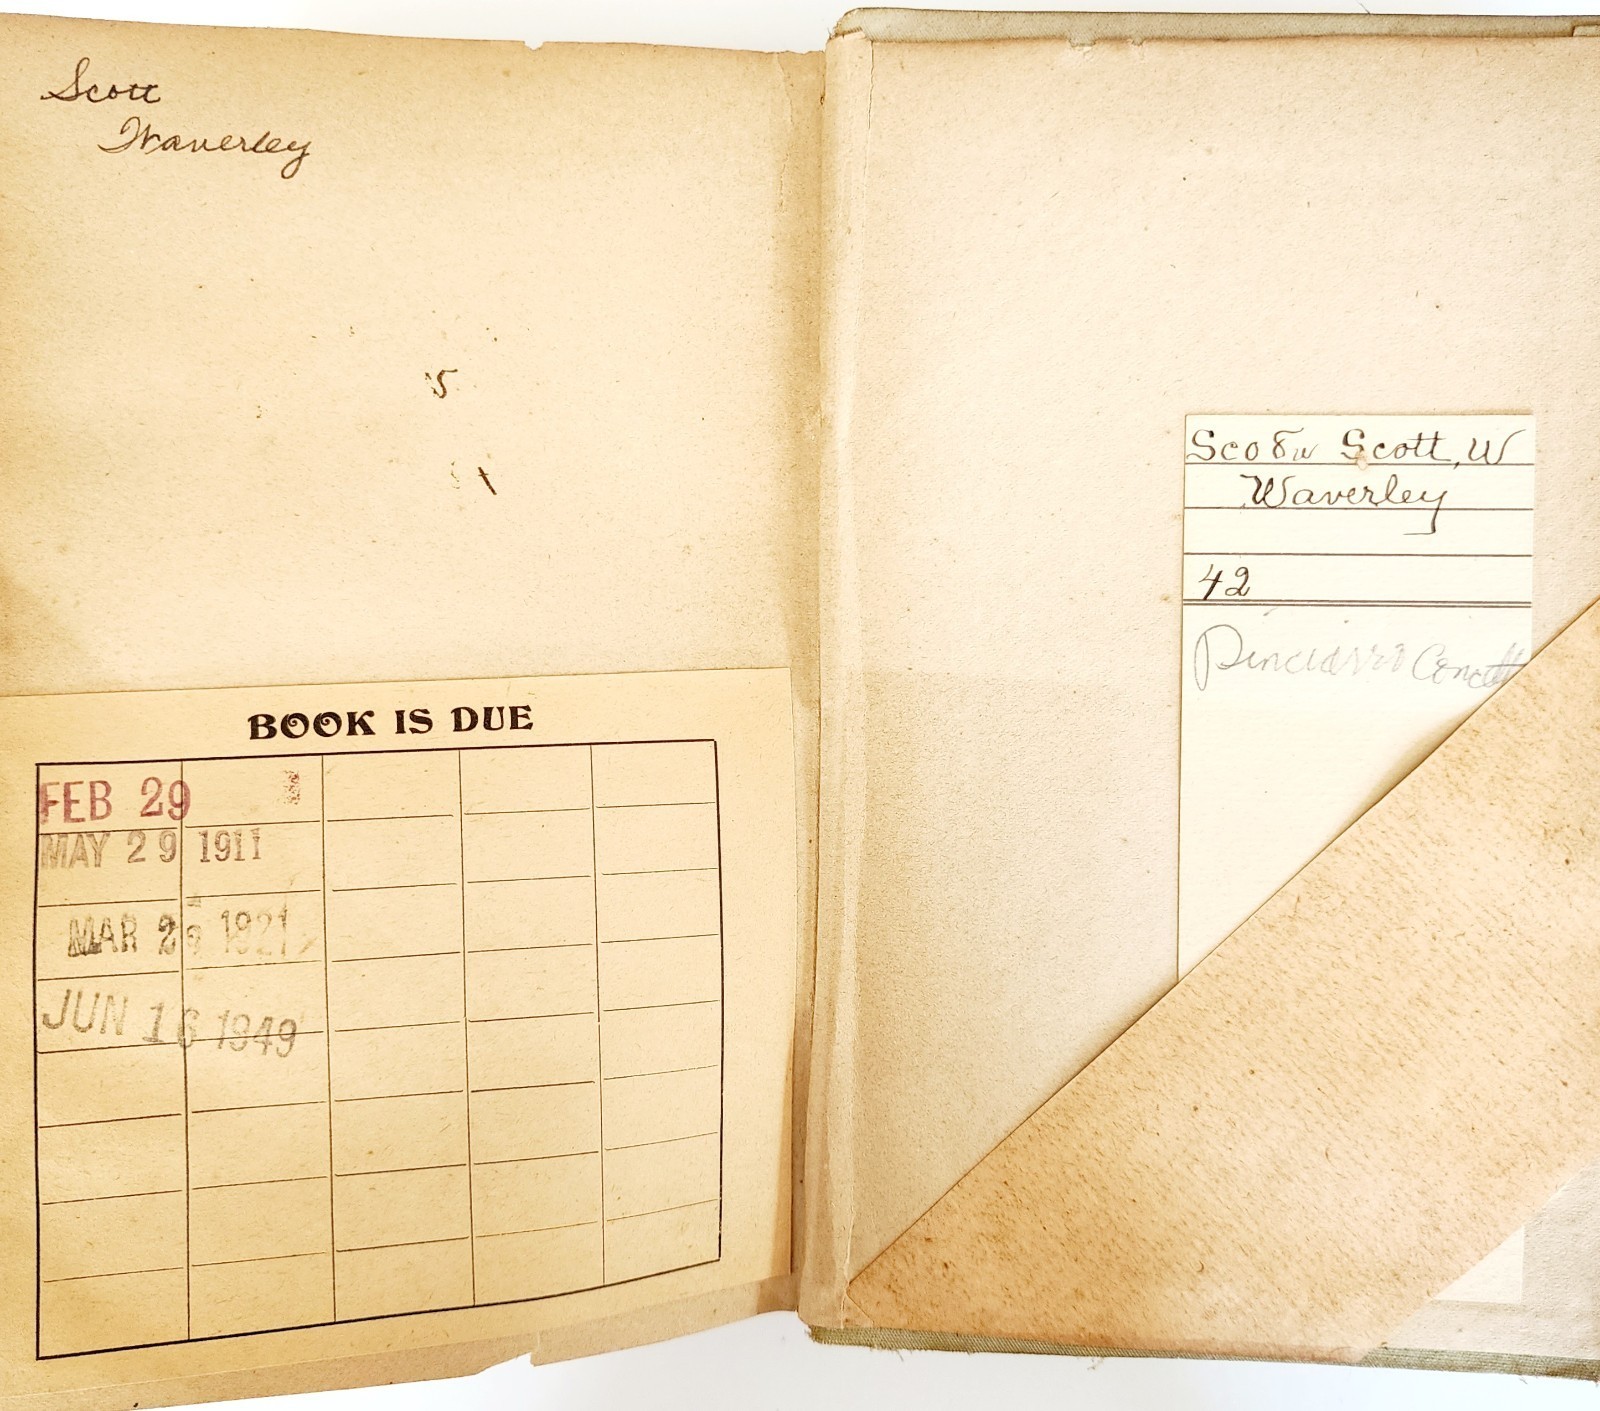 Scott
Waverley
5
BOOK IS DUE
FEB 29
MAY 29 1911
MAR 29 1921
JUN 16 1949
Sco8w Scott, W
Waverley
42